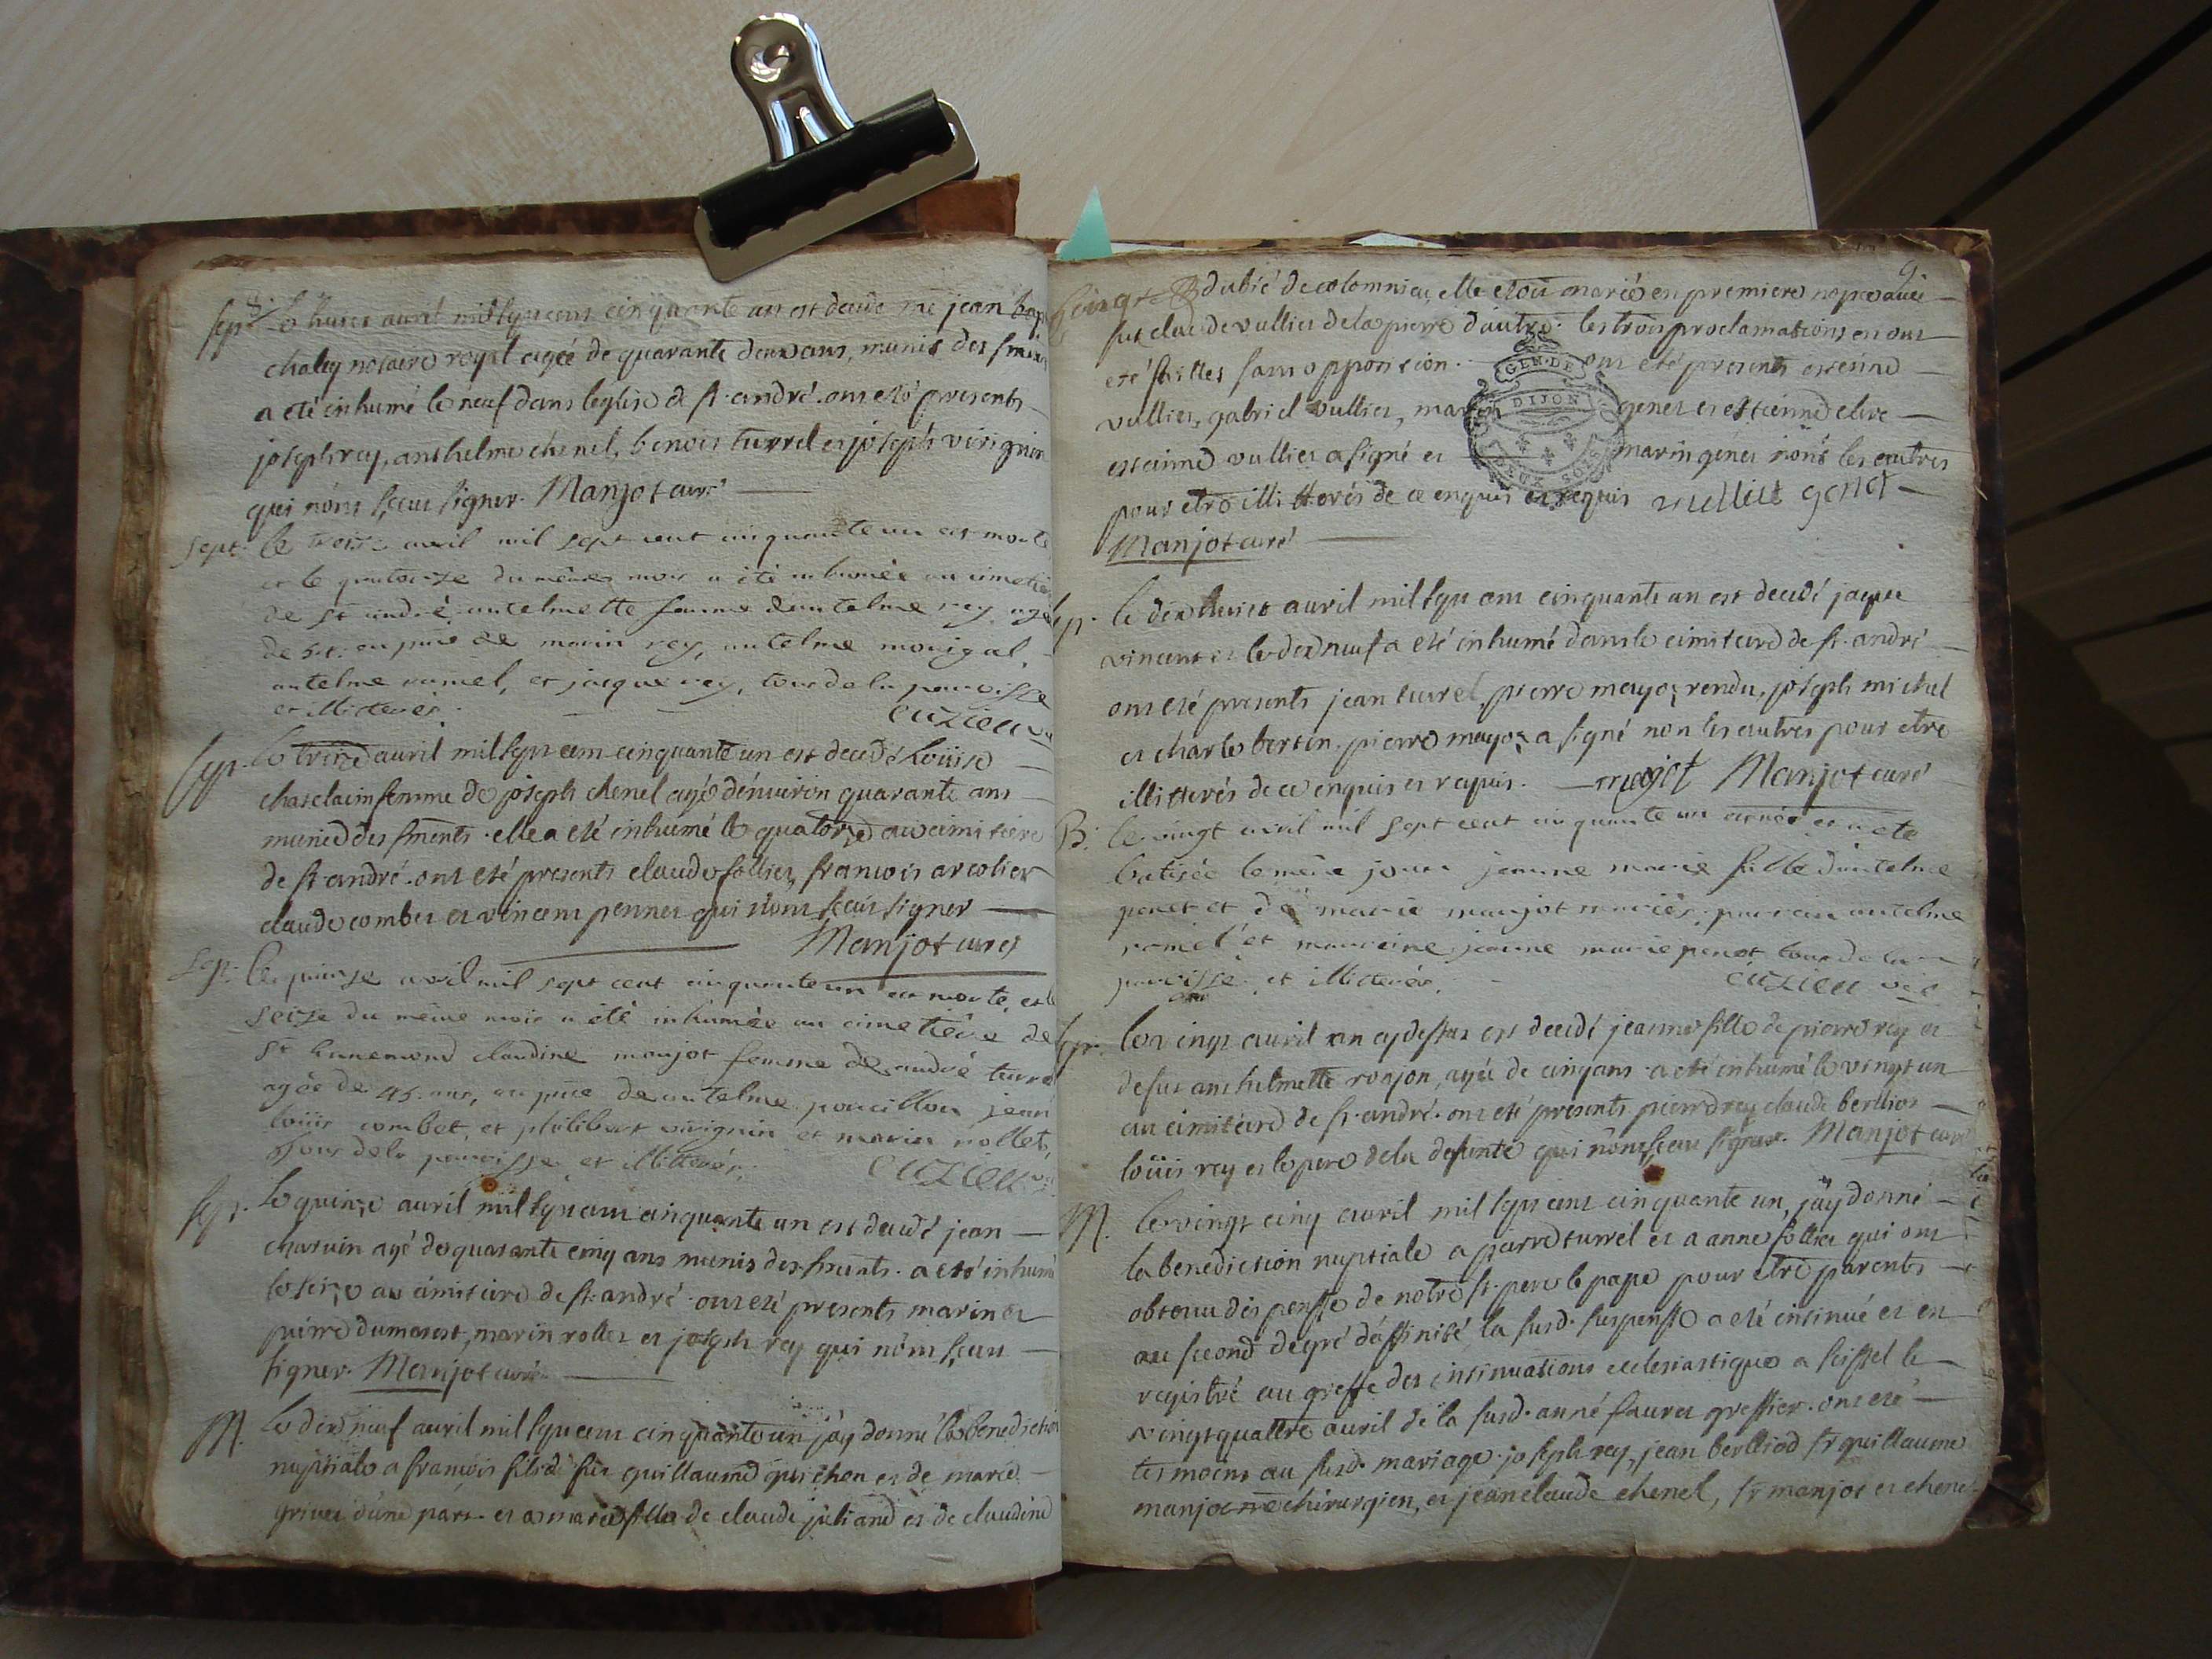 sept. le huict avril mil sept cent cinquante un est decedé me jean bap
chaley notaire royal agée de quarante deux ans, munis des
a eté inhumé le neuf dans leglise de st. andré. ont eté presents
joseph rey, anthelme chenel, benoit turrel et joseph virignin
qui nónt sceus signer. Manjot curé
sept. le avril mil sept cent cinquante un est morte
et le quatorze du même mois a été inhumée au
de st andré antelmette femme dantelme rey agé
de en pnce de marin rey, antelme monigal,
antelme ramel, et jacque rey, tous de la paroisse
et illitterés. cuzieu
sept. le treize avril mil sept cent cinquante un est decedé Loüise
chatelain femme de joseph chenel agé dénuiron quarante ans
munie des sments. elle a eté inhumé le quatorze au cimitiere
de st. andré. ont eté presents claude follier, francois arcolier
claude combet et vincent pennet qui nónt sceus signer
Manjot curé
sep. le quinze avril mil sept cent cinquante un est morte, et le
seize du même mois a été inhumée au cimetière de
st claudine manjot femme de andré turre
agée de 45 ans, en pnce de antelme poncillon jean
loüis combet, et philibert virignin et marin rollet,
tous de la paroisse et illitterés. cuzieu
sept. le quinze avril mil sept cent cinquante un est decedé jean
charvin agé de quarante cinq ans munis des sments. a eté inhumé
le seize au cimitiere de st. andré. ont eté presents marin et
pierre dumarest, marin rollet et joseph rey qui nónt sceus
signer. Manjot curé
M. le dixneuf avril mil sept cent cinquante un jáy donné la benediction
nuptiale a francois fils de fut guillaume guichon et de marie
d'une part. et a marie fille de claude juliand et de claudine
9.
dubié de colomnieu, elle etoit mariée en premiere nopce avec
fut claude vullier de la pierre d'autre. les trois proclamations en ont
eté faittes sans opposition. ont eté presents estienne
vullier, gabriel vullier, marin genet et estienne
estienne vullier a signé et marin genet nónt les autres
pour etre illitterés de ce enquis et requis vulliet genet
Manjot curé
sep. le dixhuict avril mil sept cent cinquante un est decedé jaque
vincent et le dixneuf a eté inhumé dans le cimitiere de st. andré
ont eté presents jean turrel, pierre mayot rendu, joseph michel
et charle bertin. pierre mayot a signé non les autres pour etre
illitterés de ce enquis et requis. majot Manjot curé
B. le vingt avril mil sept cent cinquante un est née et a eté
batisée le même jour jeanne marie fille dantelme
penet et de marie manjot mariés, parrain antelme
ramel et marreine jeanne marie penet tous de la
paroisse et illitterés. cuzieu vic
sept. le vingt avril an cy dessus est decedé jeanne fille de pierre rey et
de fut anthelmette ronjon, agée de cinq ans a eté inhumé le vingt un
au cimitiere de st. andré. ont eté presents pierre rey claude berlliot
loüis rey et le pere de la defunte qui nónt sceu signer. Manjot curé
M. le vingt cinq avril mil sept cent cinquante un, jáy donné
la benediction nuptiale a pierre turrel et a anne follier qui ont
obtenu dispensse de notre st. pere le pape pour etre parents
au second degré dáffinité, la susd. suspensse a eté insinué et en
registré au greffe des insinuations ecclesiastique a seissel le
vingt quattre avril de la susd. anné faures greffier. ont eté
tesmoins au susd. mariage joseph rey, jean berlliod sr guillaume
manjot me chirurgien, et jean claude chenel, sr manjot et chenel
GEN. DE
DIJON
DEUX SOLS